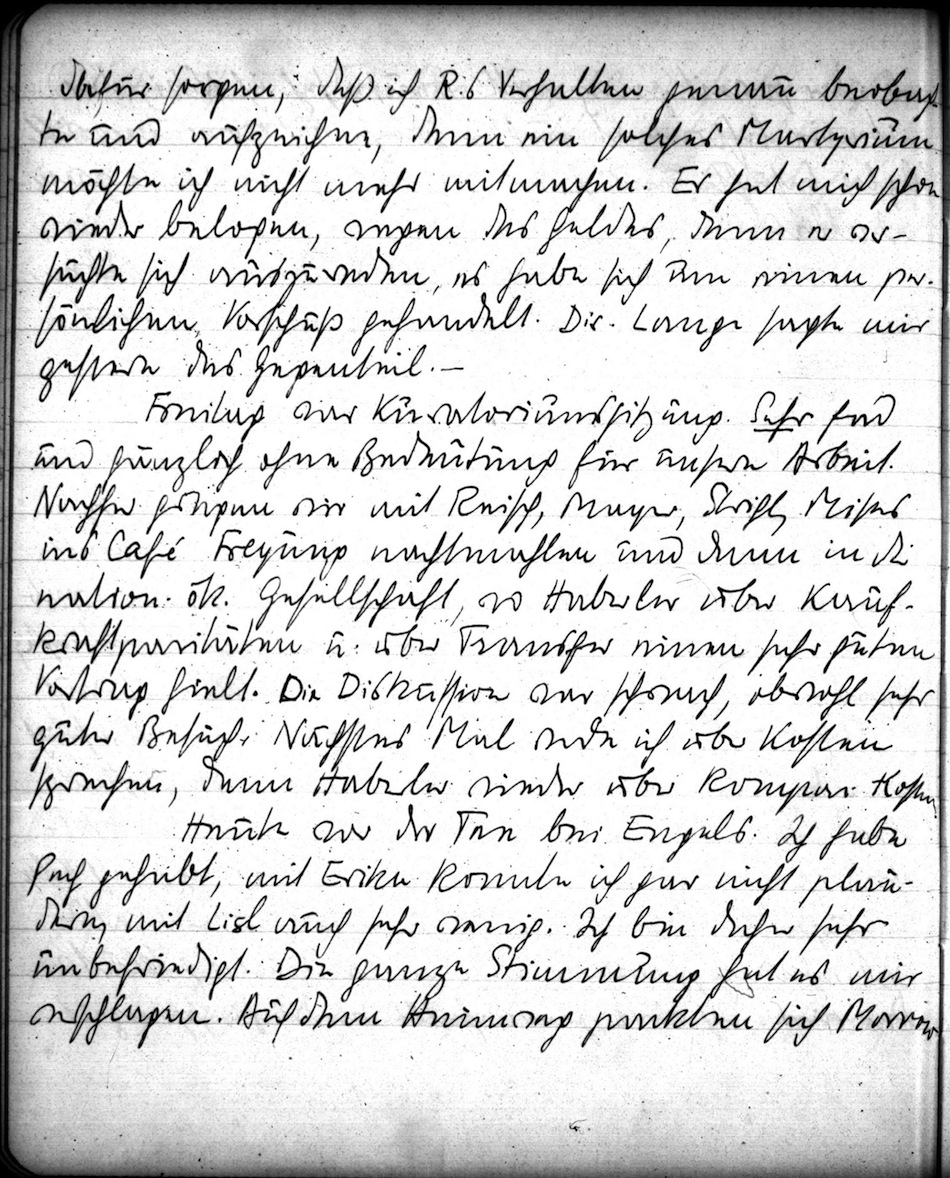 dafür sorgen, daß ich R.s Verhalten genau beobach-
te und aufzeichne, denn ein solches Martyrium
möchte ich nicht mehr mitmachen. Er hat mich schon
wieder belogen, wegen des Geldes, denn er ver-
suchte sich auszureden, es habe sich um einen per-
sönlichen Vorschuß gehandelt. Dir. Lange sagte mir
gestern das Gegenteil. —
Freitag war Kuratoriumssitzung. Sehr fad
und gänzlich ohne Bedeutung für unsere Arbeit.
Nachher gingen wir mit Reisch, Mayer, Strigl, Mises
ins Café Freyung nachtmahlen und dann in die
nation. ök. Gesellschaft, wo Haberler über Kauf-
kraftparitäten u. über Transfer einen sehr guten
Vortrag hielt. Die Diskussion war schwach, obwohl sehr
guter Besuch. Nächstes Mal werde ich über Kosten
sprechen, dann Haberler wieder über kompar. Kosten
Heute war der Tee bei Engels. Ich habe
Pech gehabt, mit Erika konnte ich gar nicht plau-
dern, mit Lisl auch sehr wenig. Ich bin daher sehr
unbefriedigt. Die ganze Stimmung hat es mir
verschlagen. Auf dem Heimweg zankten sich Morrow